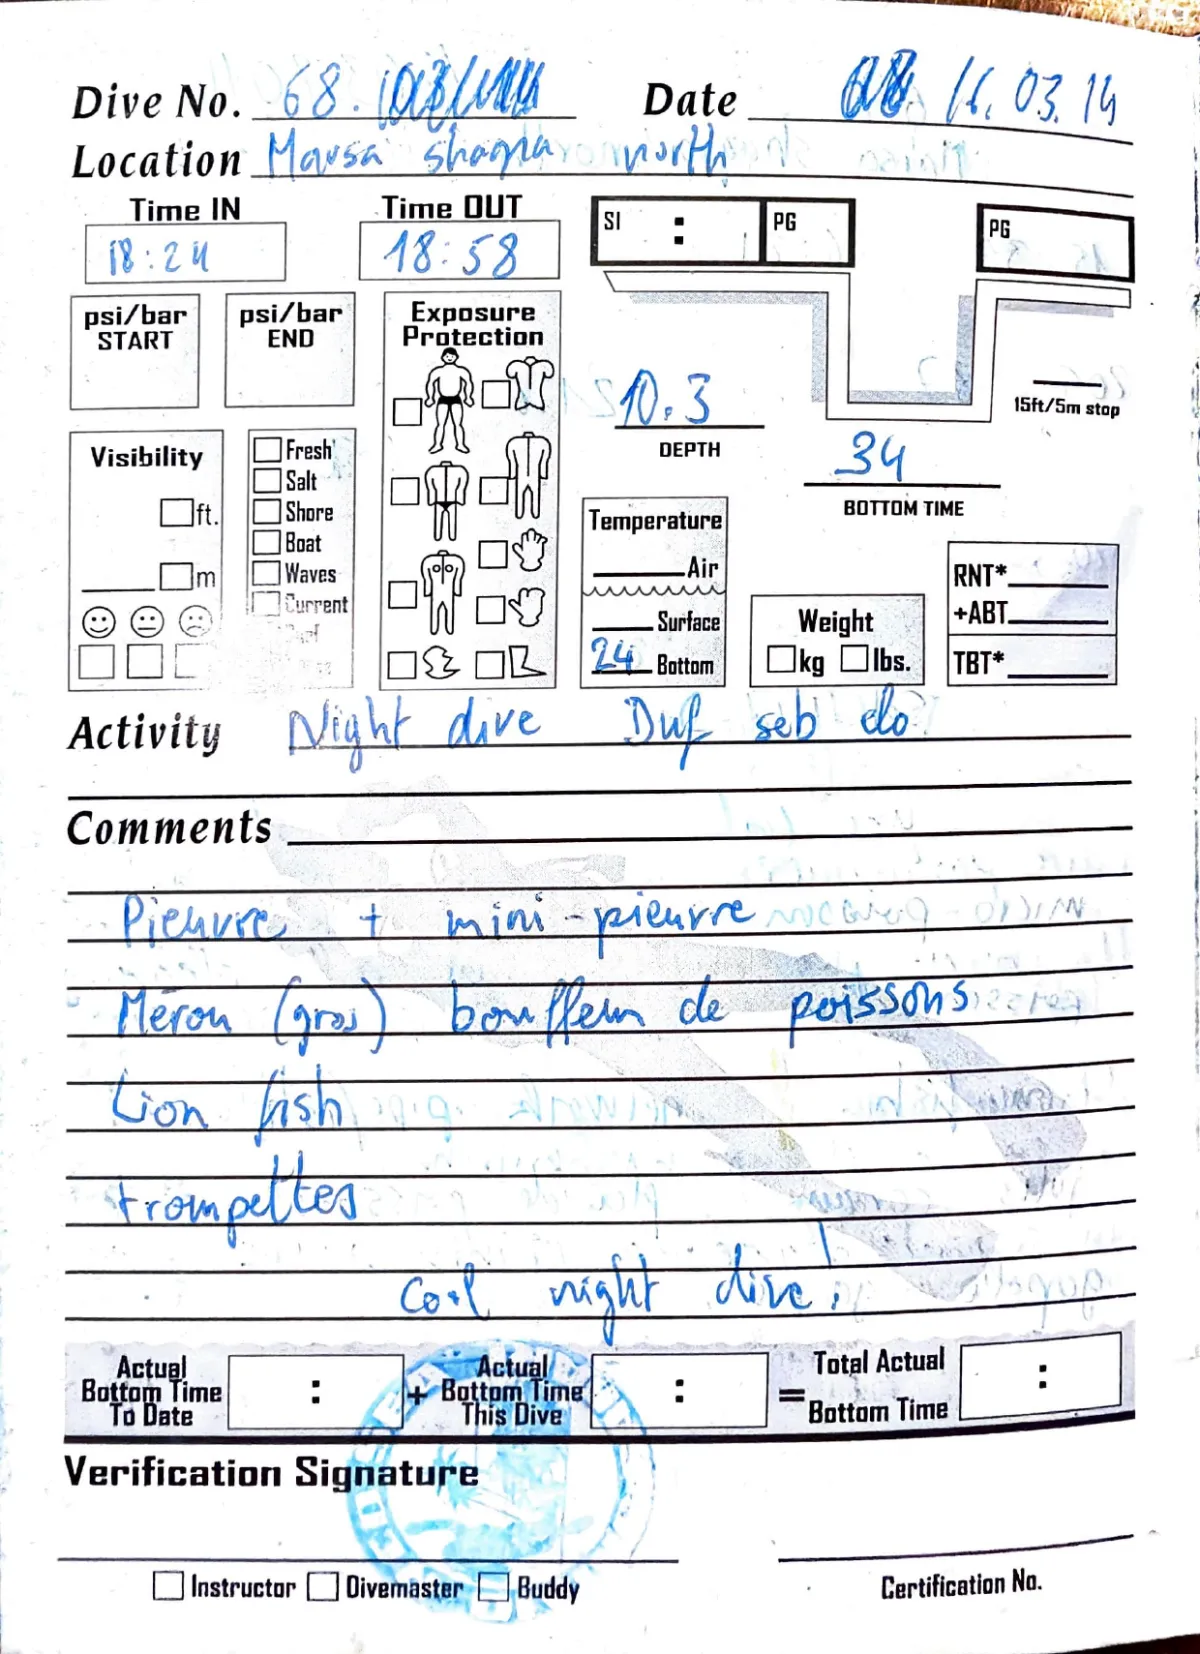 Dive No. 68. Date 16.03.14
Location Marsa shagra north
Time IN Time OUT SI : PG PG
18:24 18:58
psi/bar START psi/bar END Exposure Protection
10.3 15ft/5m stop
DEPTH 34
BOTTOM TIME
Visibility
ft.
m
Fresh
Salt
Shore
Boat
Waves
Current
Temperature
Air
Surface
24 Bottom
Weight
kg lbs.
RNT*
+ABT
TBT*
Activity Night dive Duf seb do
Comments
Pieuvre + mini-pieuvre
Mérou (gros) bouffeur de poissons
Lion fish
trompettes
Cool night dive!
Actual Bottom Time To Date : + Actual Bottom Time This Dive : = Total Actual Bottom Time :
Verification Signature
Instructor Divemaster Buddy Certification No.